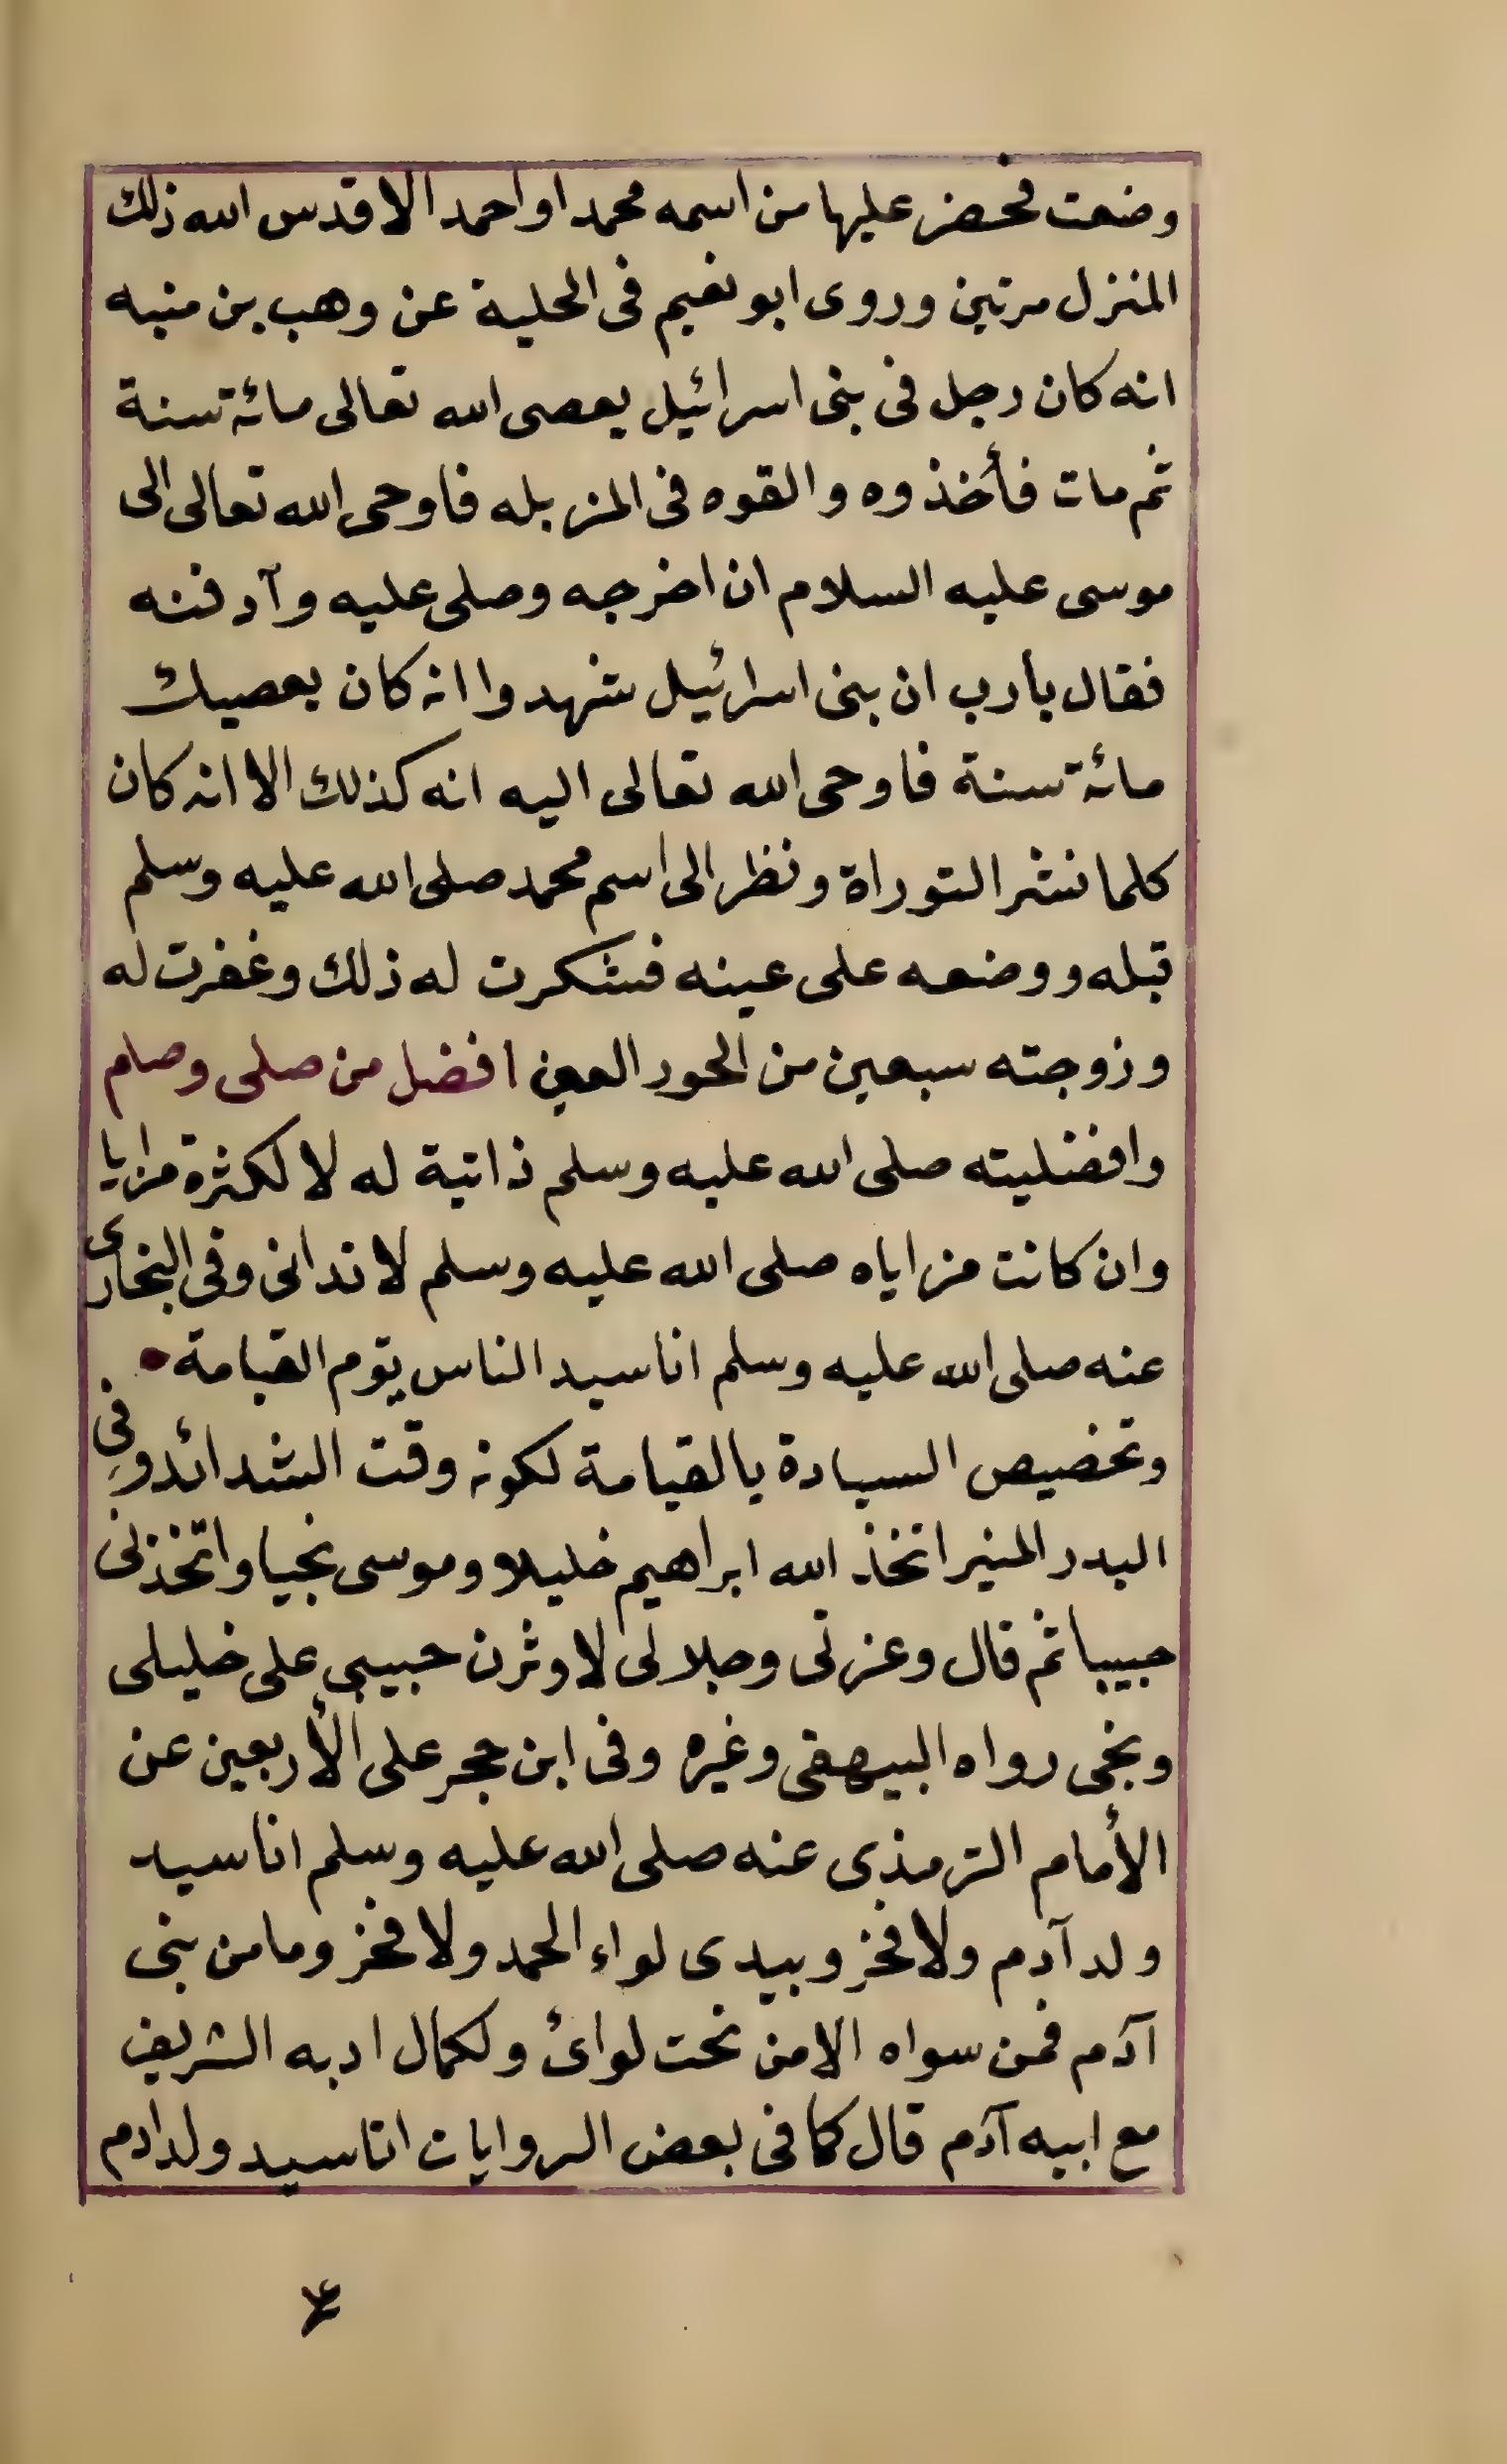 وضعت فحضر عليها من اسمه محمد او احمد الا قدس الله ذلك
المنزل مرتين وروى ابو نعيم فى الحلية عن وهب بن منبه
انه كان رجل فى بنى اسرائيل يعصى الله تعالى مائة سنة
ثم مات فأخذوه والقوه فى المزبله فاوحى الله تعالى الى
موسى عليه السلام ان اخرجه وصلى عليه وآدفنه
فقال يأرب ان بنى اسرائيل شهدوا انه كان يعصيك
مائة سنة فاوحى الله تعالى اليه انه كذلك الا انه كان
كلما نشر التوراة ونظر الى اسم محمد صلى الله عليه وسلم
قبله ووضعه على عينه فشكرت له ذلك وغفرت له
وزوجته سبعين من الحور العين افضل من صلى وصام
وافضليته صلى الله عليه وسلم ذاتية له لا لكثرة مزايا
وان كانت مزاياه صلى الله عليه وسلم لا تدانى وفى البخارى
عنه صلى الله عليه وسلم انا سيد الناس يوم القيامة
وتخصيص السيادة بالقيامة لكونه وقت الشدائد وفى
البدر المنير اتخذ الله ابراهيم خليلا وموسى نجيا واتخذنى
حبيبا ثم قال وعزتى وجلالى لاوثرن حبيبى على خليلى
ونجى رواه البيهقى وغيره وفى ابن حجر على الأربعين عن
الأمام الترمذى عنه صلى الله عليه وسلم انا سيد
ولد آدم ولا فخر وبيدى لواء الحمد ولا فخر وما من بنى
آدم فمن سواه الا من تحت لوائ ولكمال ادبه الشريف
مع ابيه آدم قال كما فى بعض الروايات انا سيد ولد ادم